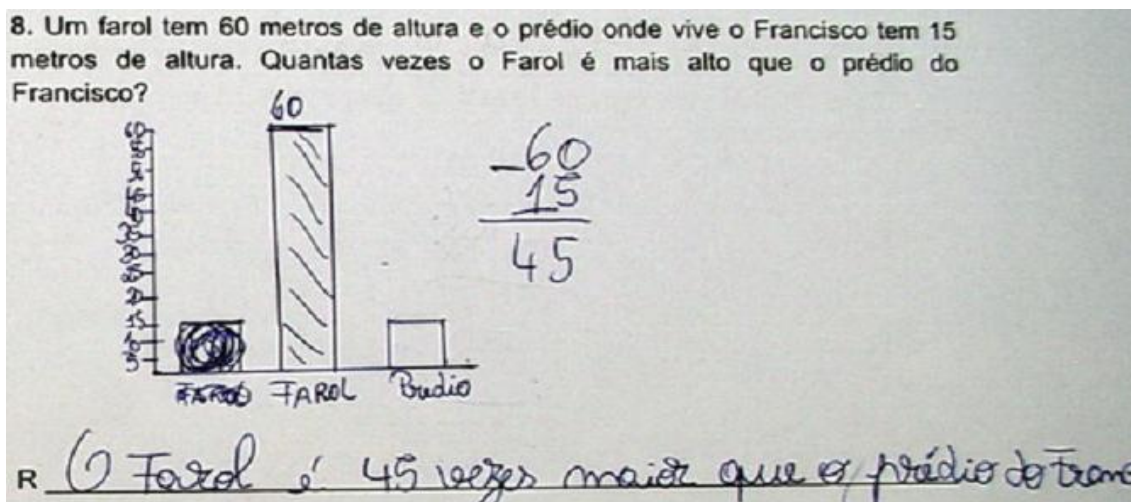 8. Um farol tem 60 metros de altura e o prédio onde vive o Francisco tem 15
metros de altura. Quantas vezes o Farol é mais alto que o prédio do
Francisco?
60
60
20
15
10
5
- 60
15
45
FAROL FAROL Prudio
R O Farol é 45 vezes maior que o prédio do Franc